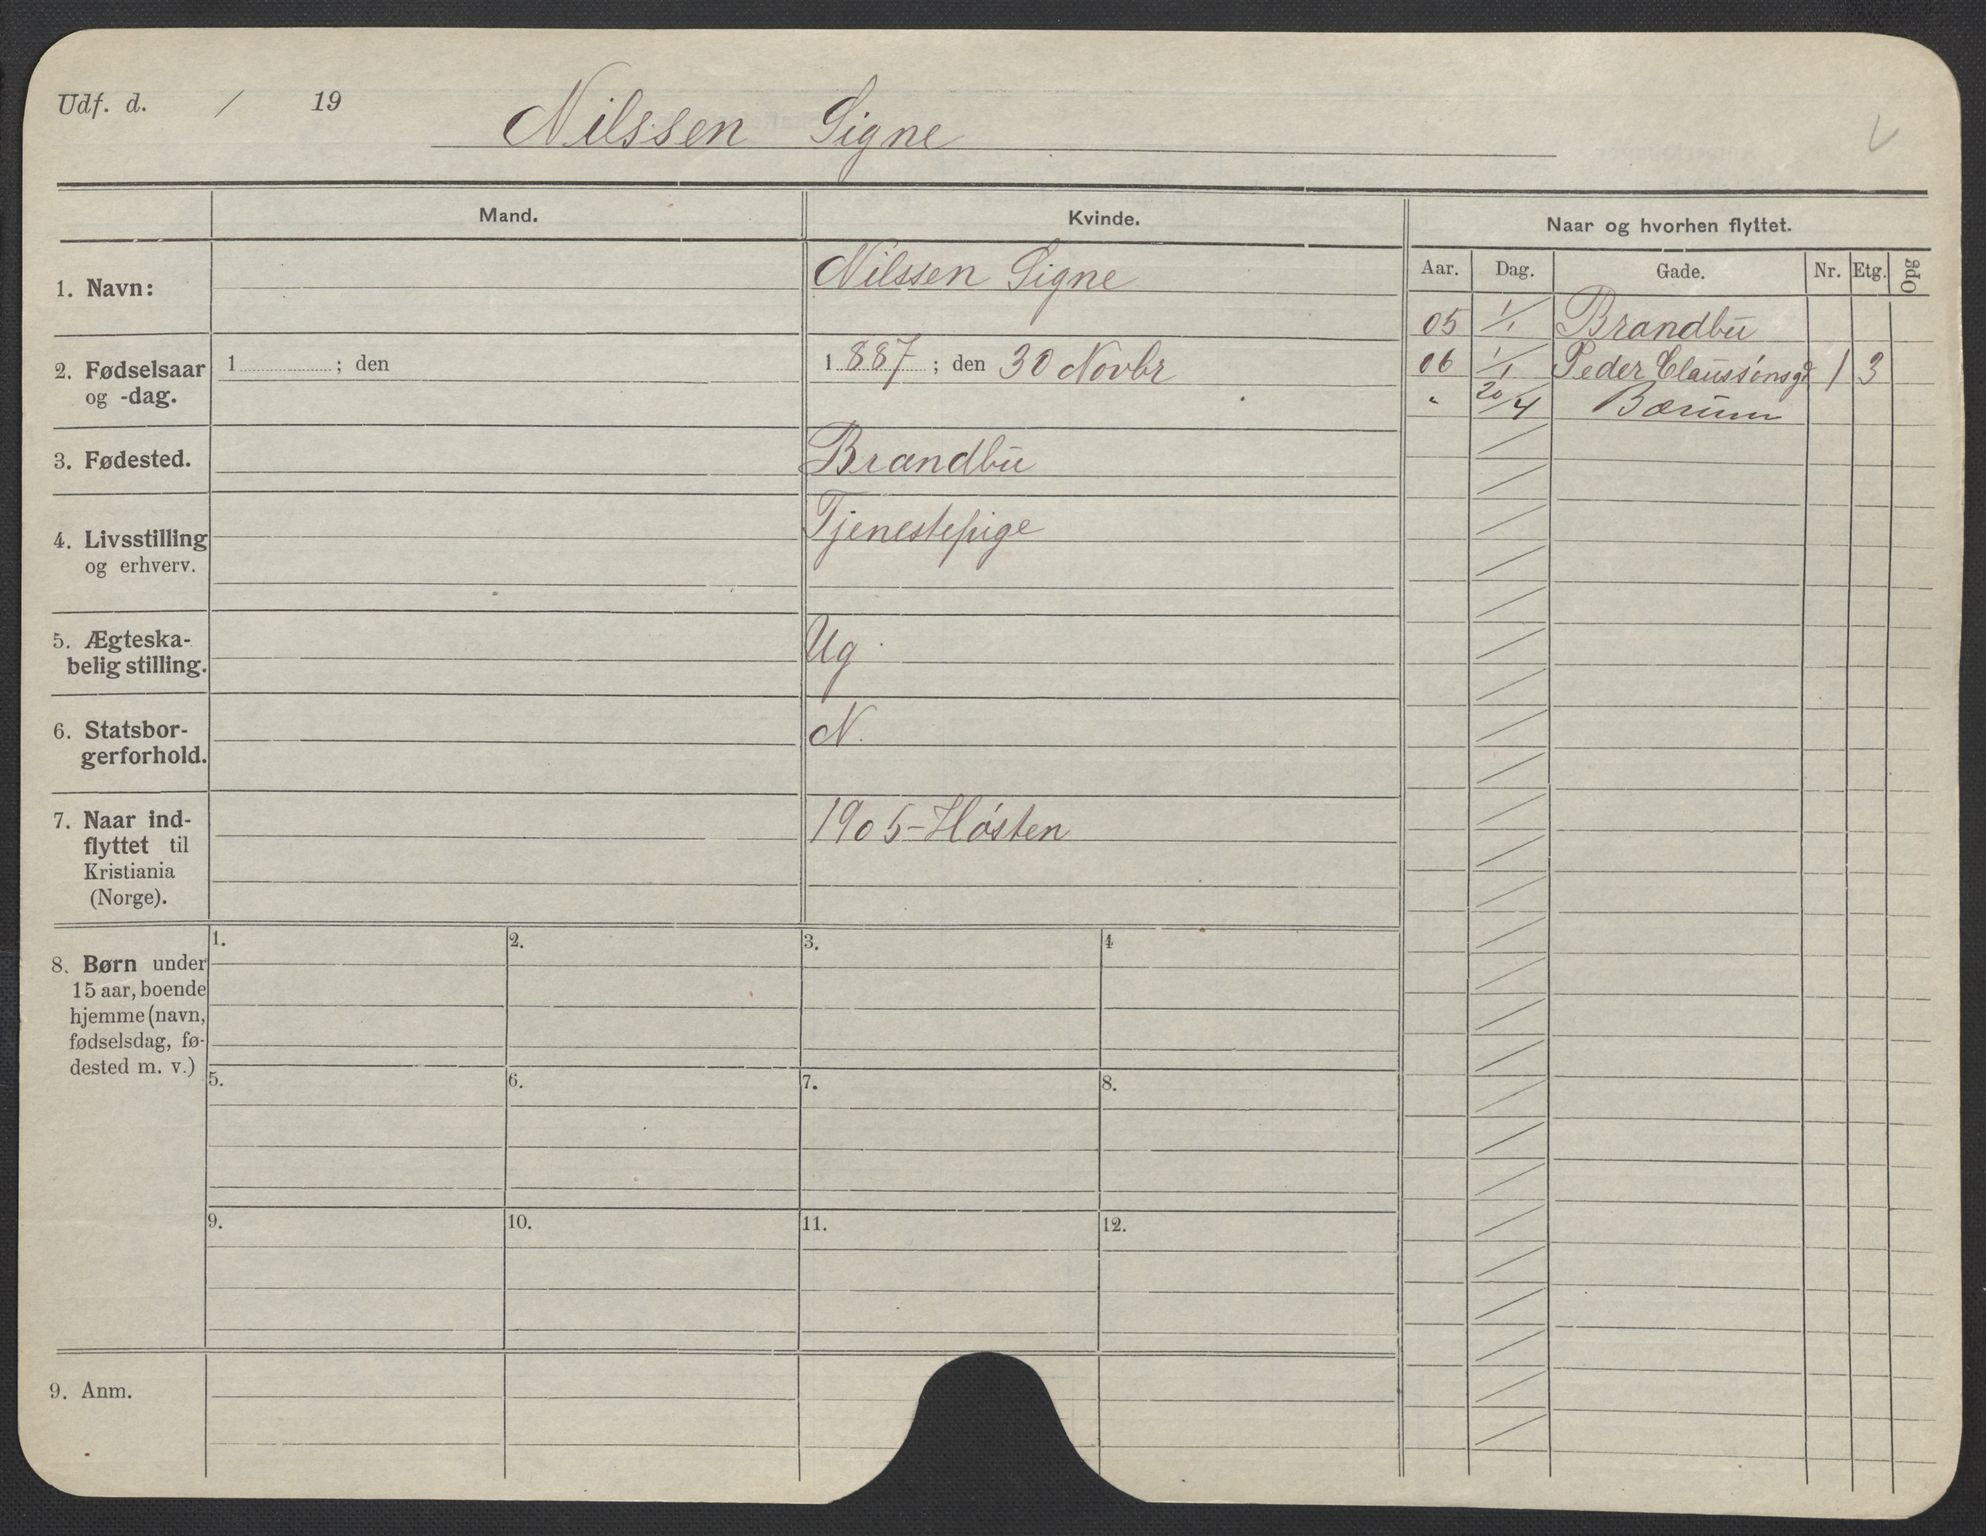 Udf. d. / 19
Nilssen Signe
Mand.
Kvinde.
Naar og hvorhen flyttet.
Aar. Dag. Gade. Nr. Etg. Opg
1. Navn:
Nilssen Signe
2. Fødselsaar
og -dag.
1 ; den
1 887 ; den 30 Novbr
3. Fødested.
Brandbu
4. Livsstilling
og erhverv.
Tjenestepige
5. Ægteska-
belig stilling.
Ug.
6. Statsbor-
gerforhold.
N.
7. Naar ind-
flyttet til
Kristiania
(Norge).
1905-Høsten
05 1/1 Brandbu
06 1/1 Peder Claussønsgd 1 3
" 20/4 Bærum
8. Børn under
15 aar, boende
hjemme (navn,
fødselsdag, fø-
dested m. v.)
1. 2. 3. 4
5. 6. 7. 8.
9. 10. 11. 12.
9. Anm.